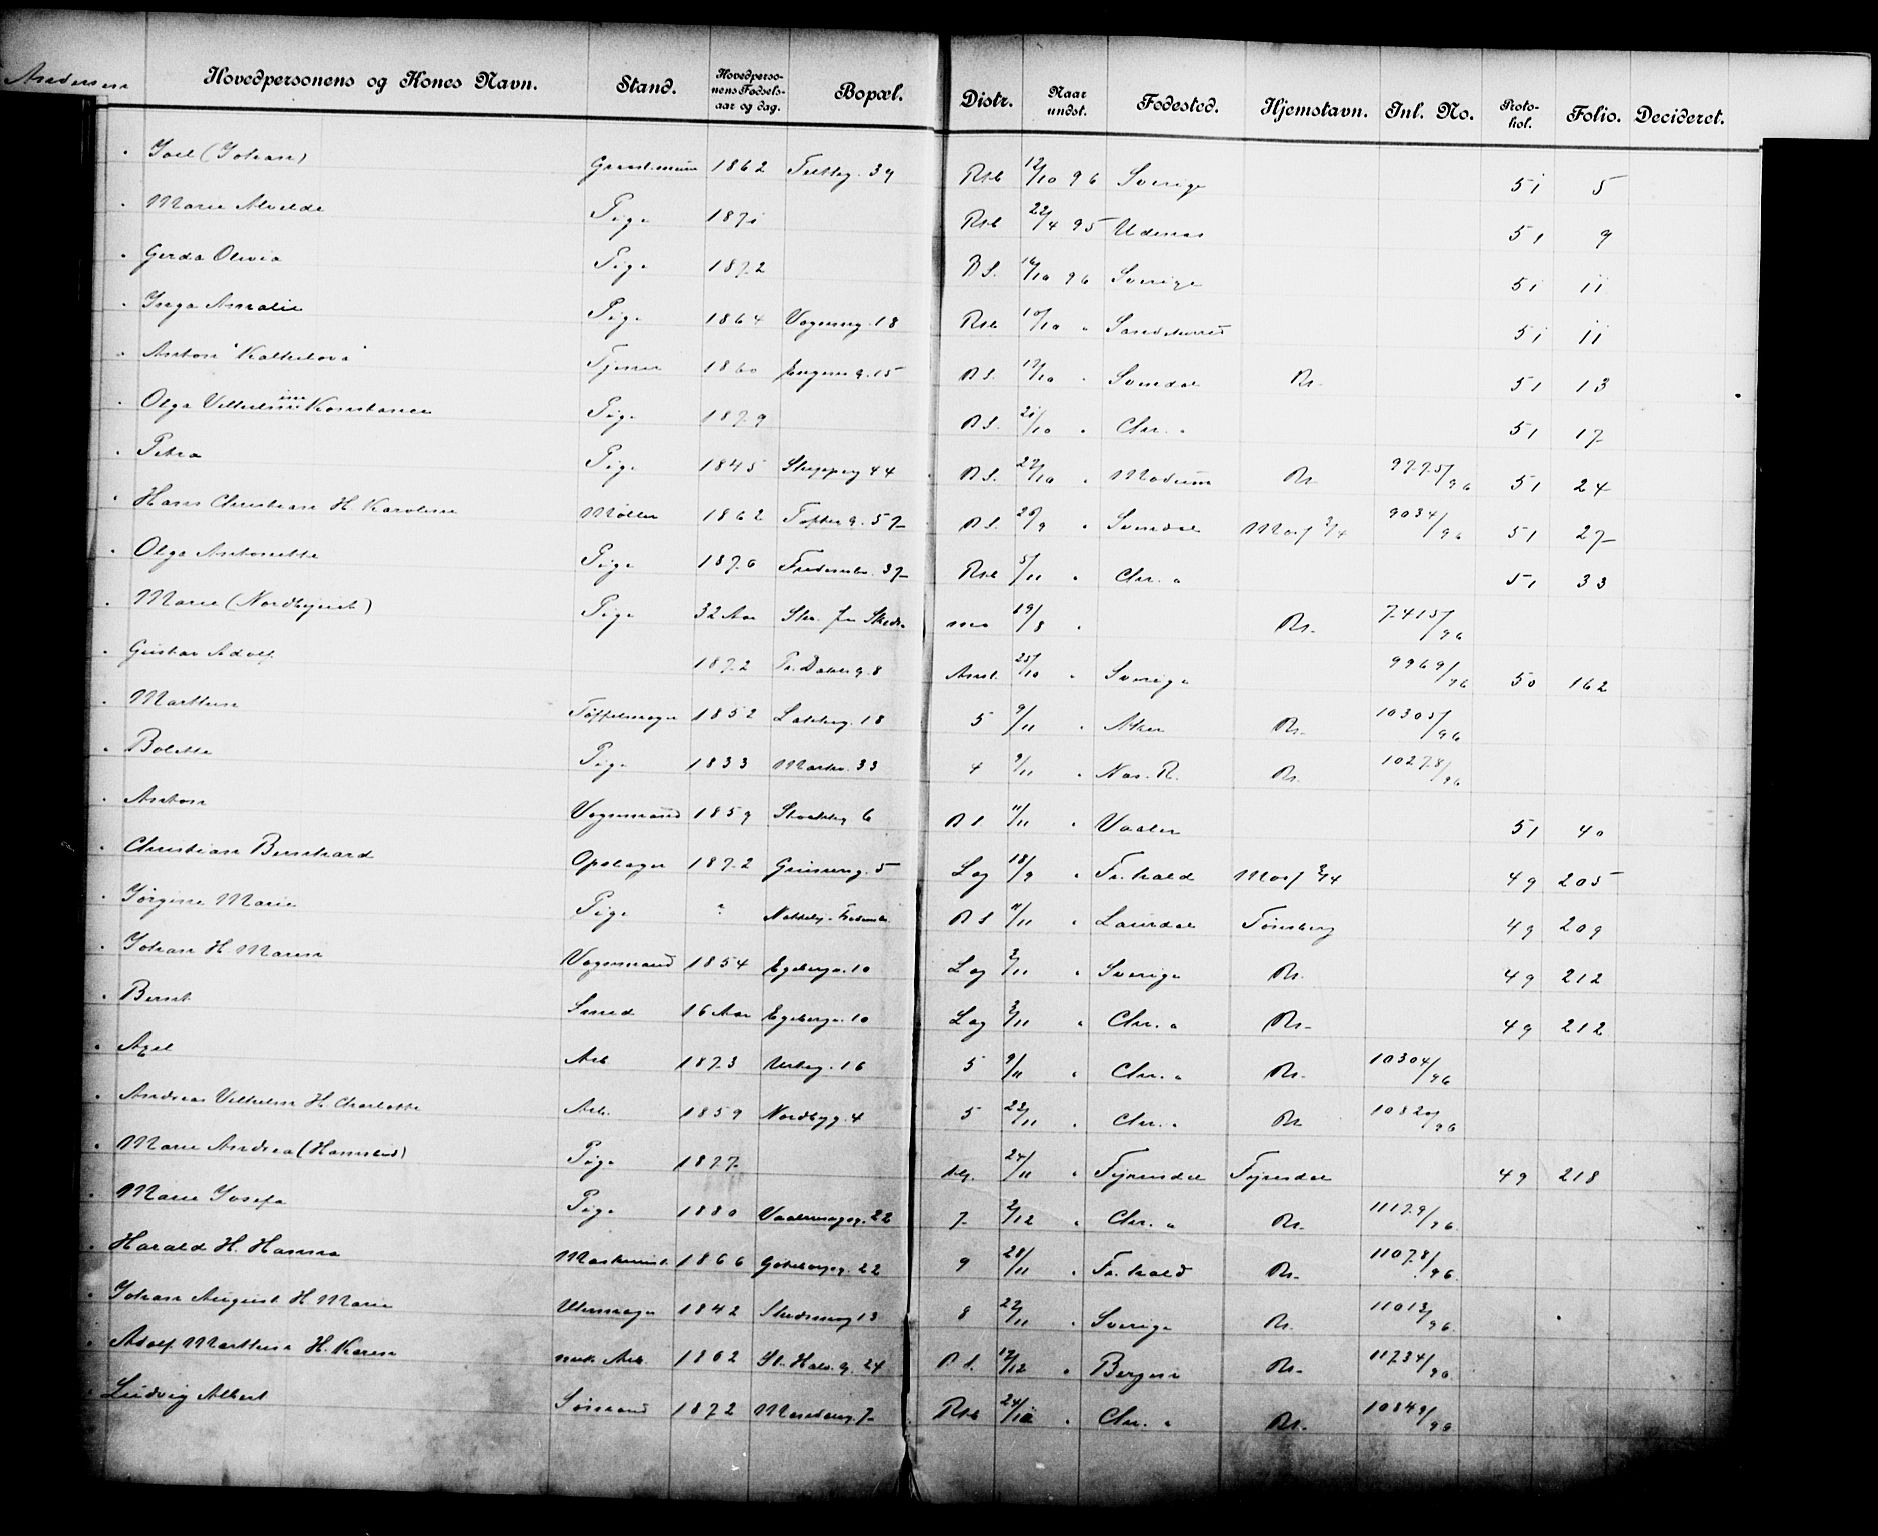 Andersen Hovedpersonens og Kones Navn. Stand. Hovedperso-nens Fødsels-aar og dag. Bopæl. Distr. Naar undst. Fødested. Hjemstavn. Inl. No. Proto-kol. Folio. Decideret.
" Joel (Johan) 1862 39 Rst 12/10 96 Sverige 51 5
" Marie Alvilde Pige 1871 Rst 22/4 95 Udenas 51 9
" Gerda Olivia Pige 1872 B S. 16/10 96 Sverige 51 11
" Inga Amalie Pige 1864 Vognmg. 18 Rst 10/10 " 51 11
" Anton Tjener 1860 15 B S. 17/10 " Svendal Br. 51 13
" Olga Vilhelmine Konstance Pige 1879 B S. 21/10 " Chr. a 51 17
" Petra Pige 1845 Skippg 44 B S. 27/10 " Modum Br. 9775/96 51 24
" Hans Christian H. Karoline Møller 1862 Tofteg. 57 B S. 29/9 " Svendal 9034/96 51 27
" Olga Antonette Pige 1876 Fredensbr. 37 Rst 5/11 " Chr. a 51 33
" Marie (Nordbyeie) Pige 32 Aar 19/8 " Br. 7415/96
" Gustav Adolf 1872 8 25/10 " Sverige 9969/96 50 162
" Marthin Tøffelmager 1852 Lakkeg. 18 5 9/11 " Aker Br. 10305/96
" Bolette Pige 1833 Markv. 33 4 9/11 " Nas. R. Br. 10278/96
" Anton Vognmand 1859 6 B S. 11/11 " Vaaler 51 40
" Christian Bernhard Opslager 1872 Grünerg. 5 Log 18/9 " Fr.hald 49 205
" Jørgine Marie Pige ? B S 11/11 " Laurdal Tønsberg 49 209
" Johan H. Maren Vognmand 1854 Egeberga. 10 Log 2/11 " Sverige Br. 49 212
" Bernt Smed 16 Aar Egeberga. 10 Log 2/11 " Chr. a Br. 49 212
" Axel Arb 1873 Urteg. 16 5 9/11 " Chr. a Br. 10304/96
" Andreas Vilhelm H. Charlotte Arb. 1859 Nordbyg. 4 5 " Chr. a Br. 10820/96
" Marie Andrea (Hamstad) Pige 1877 24/11 " Fyresdal Fyresdal 49 218
" Marie Josefa Pige 1880 Vaalerengag. 22 7 2/12 " Chr. a Br. 11179/96
" Harald H. Hanna Maskinist. 1866 Gøteborgg. 22 9 28/11 " Fr.hald Br. 11078/96
" Johan August H. Marie Uhrmager 1842 13 8 27/11 " Sverige Br. 11013/96
" Adolf Marthin H. Karen Arb. 1862 St. Halv. g. 24 B S. 12/12 " Bergen Br. 11734/96
" Ludvig Albert Sømand 1872 7 Rst " Chr. a Br. 10849/96